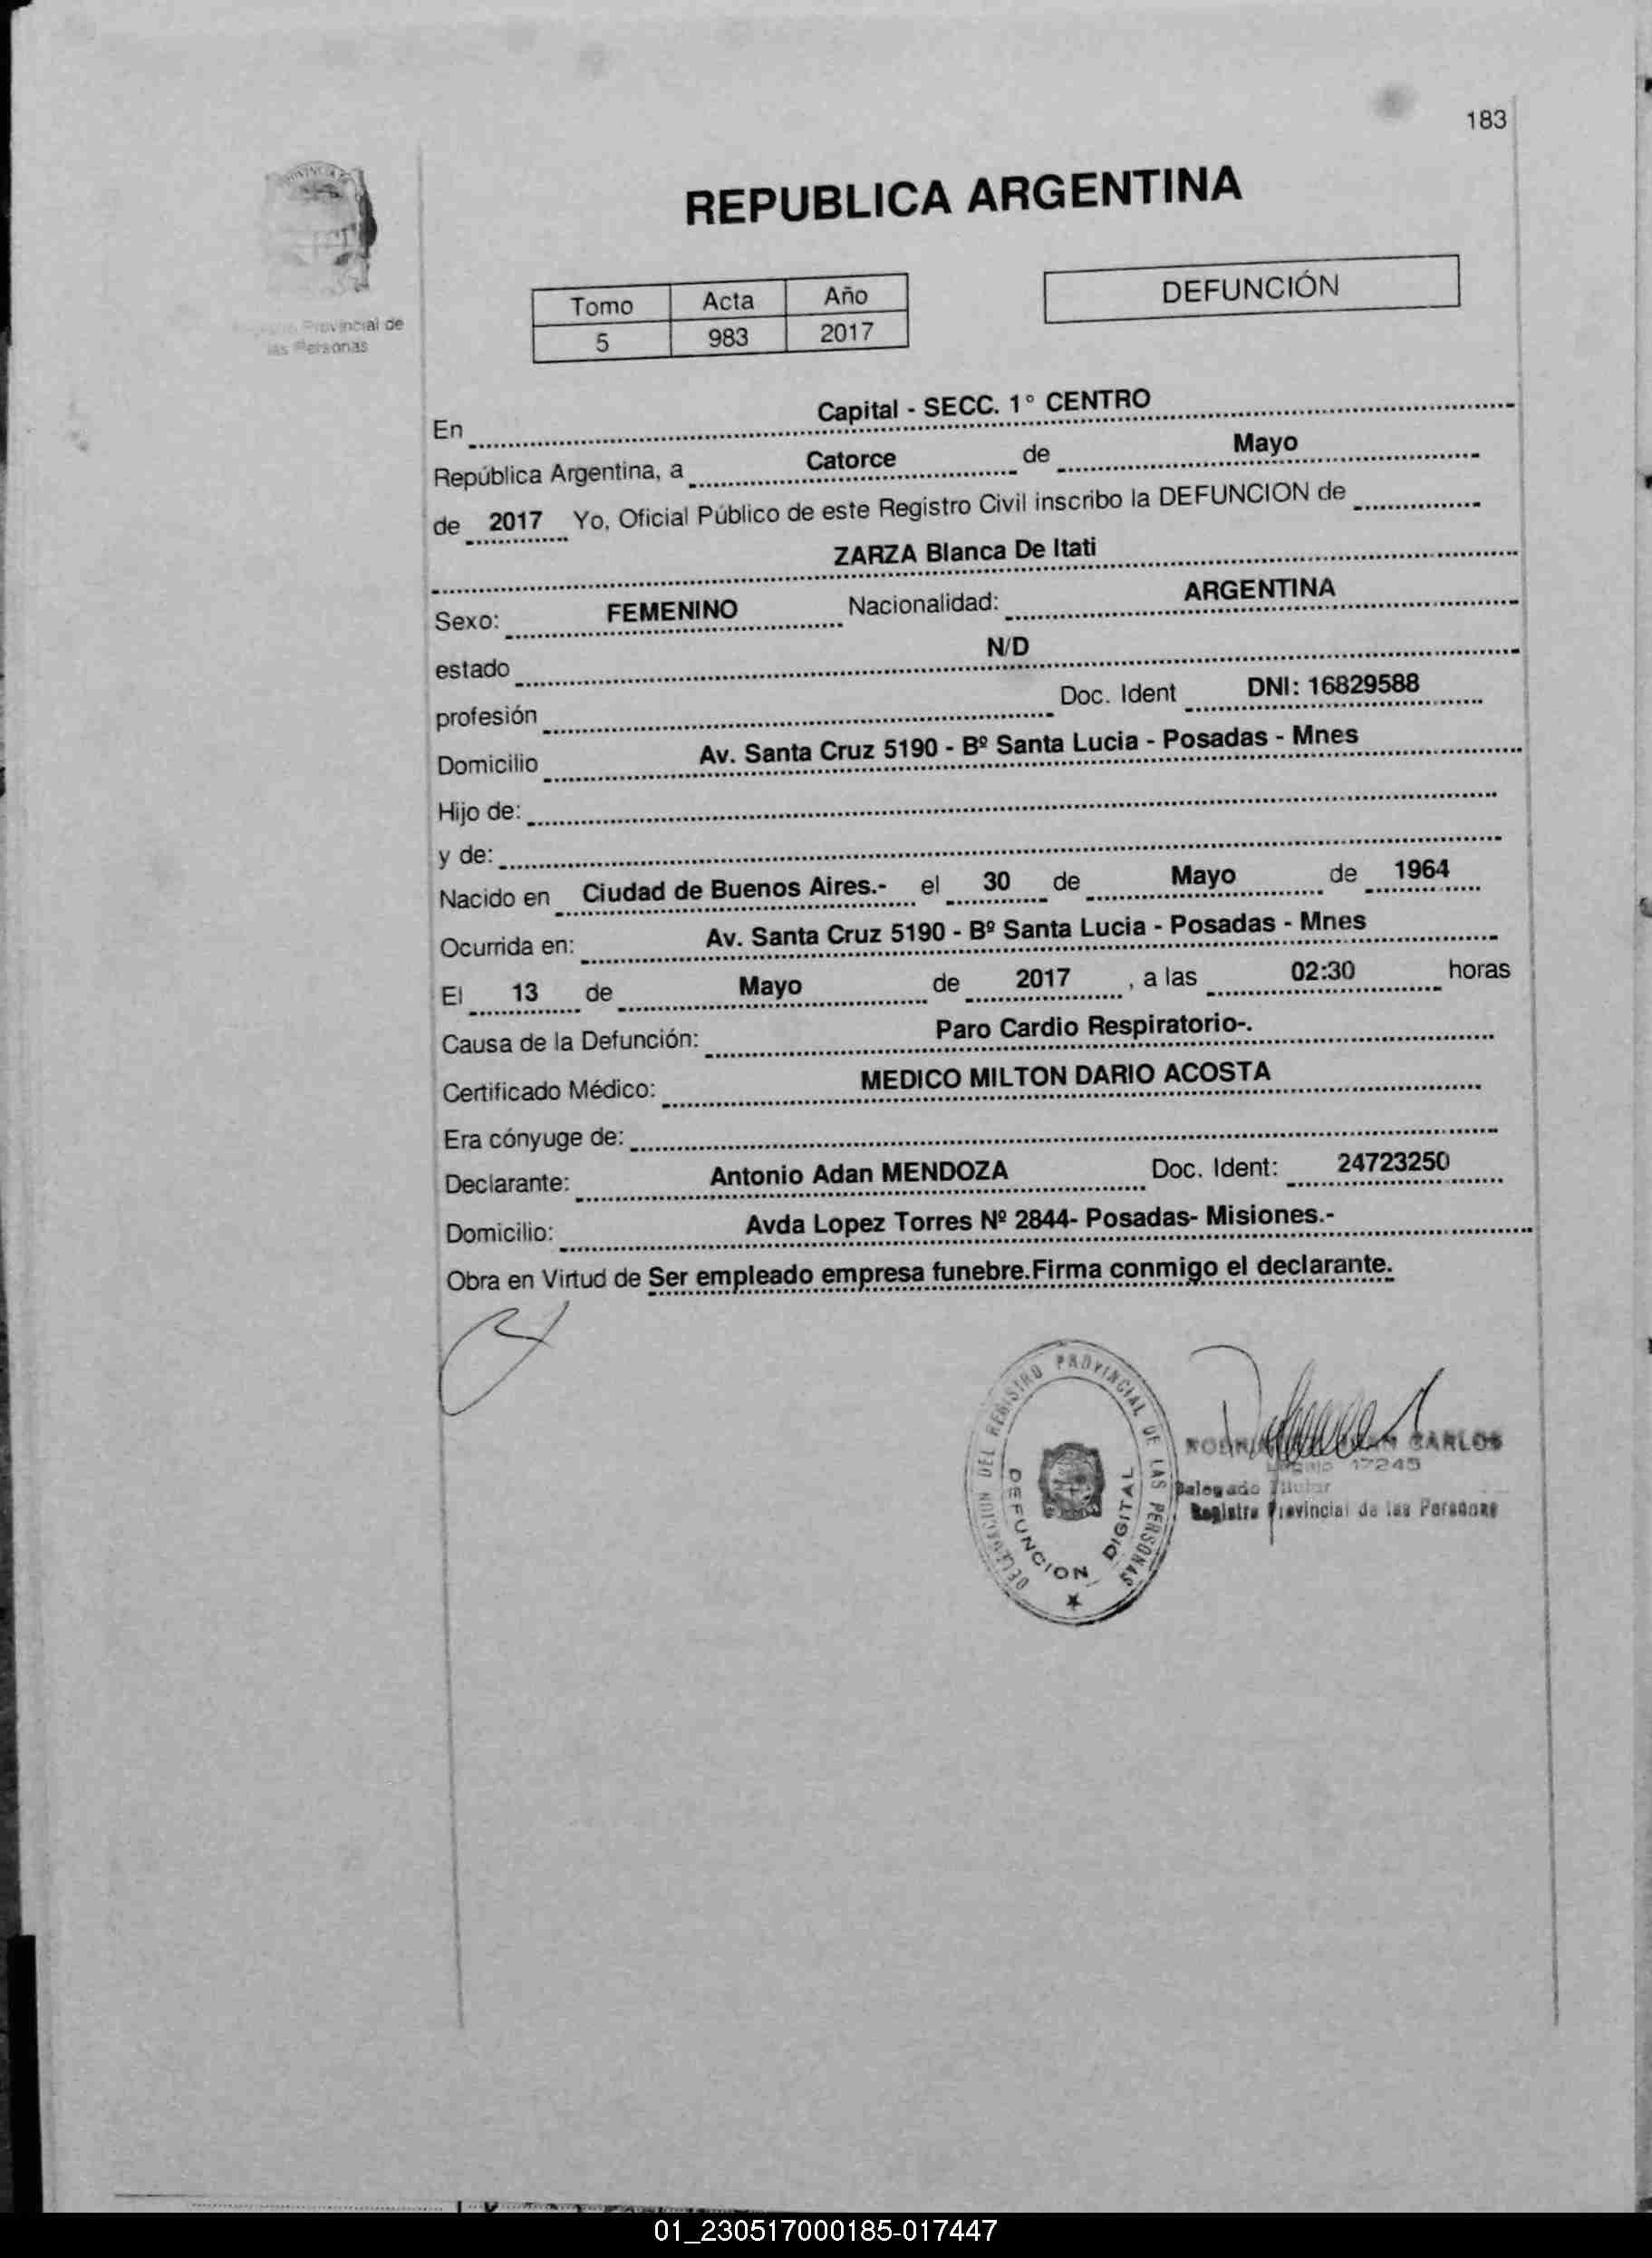 183
Provincial de
las Personas
REPUBLICA ARGENTINA
Tomo Acta Año
5 983 2017
DEFUNCIÓN
En Capital - SECC. 1° CENTRO
República Argentina, a Catorce de Mayo
de 2017 Yo, Oficial Público de este Registro Civil inscribo la DEFUNCION de
ZARZA Blanca De Itati
Sexo: FEMENINO Nacionalidad: ARGENTINA
estado N/D
profesión Doc. Ident DNI: 16829588
Domicilio Av. Santa Cruz 5190 - Bº Santa Lucia - Posadas - Mnes
Hijo de:
y de:
Nacido en Ciudad de Buenos Aires.- el 30 de Mayo de 1964
Ocurrida en: Av. Santa Cruz 5190 - Bº Santa Lucia - Posadas - Mnes
El 13 de Mayo de 2017 , a las 02:30 horas
Causa de la Defunción: Paro Cardio Respiratorio-.
Certificado Médico: MEDICO MILTON DARIO ACOSTA
Era cónyuge de:
Declarante: Antonio Adan MENDOZA Doc. Ident: 24723250
Domicilio: Avda Lopez Torres Nº 2844- Posadas- Misiones.-
Obra en Virtud de Ser empleado empresa funebre.Firma conmigo el declarante.
DELEGACION DEL REGISTRO PROVINCIAL DE LAS PERSONAS
DEFUNCION DIGITAL
CARLOS
17245
Delegado Titular
Registro Provincial de las Personas
01_230517000185-017447